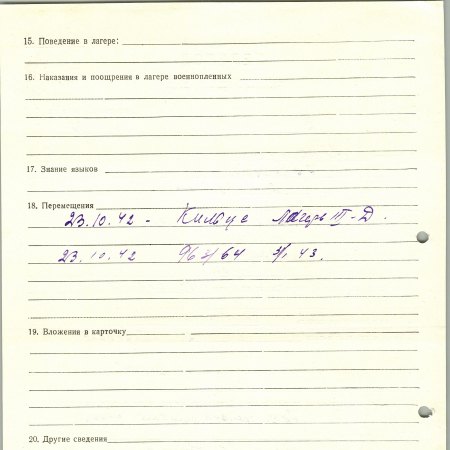 15. Поведение в лагере:
16. Наказания и поощрения в лагере военнопленных
17. Знание языков
18. Перемещения
23.10.42 - Кильце Лагерь III-Д.
23.10.42 96 64 43.
19. Вложения в карточку
20. Другие сведения